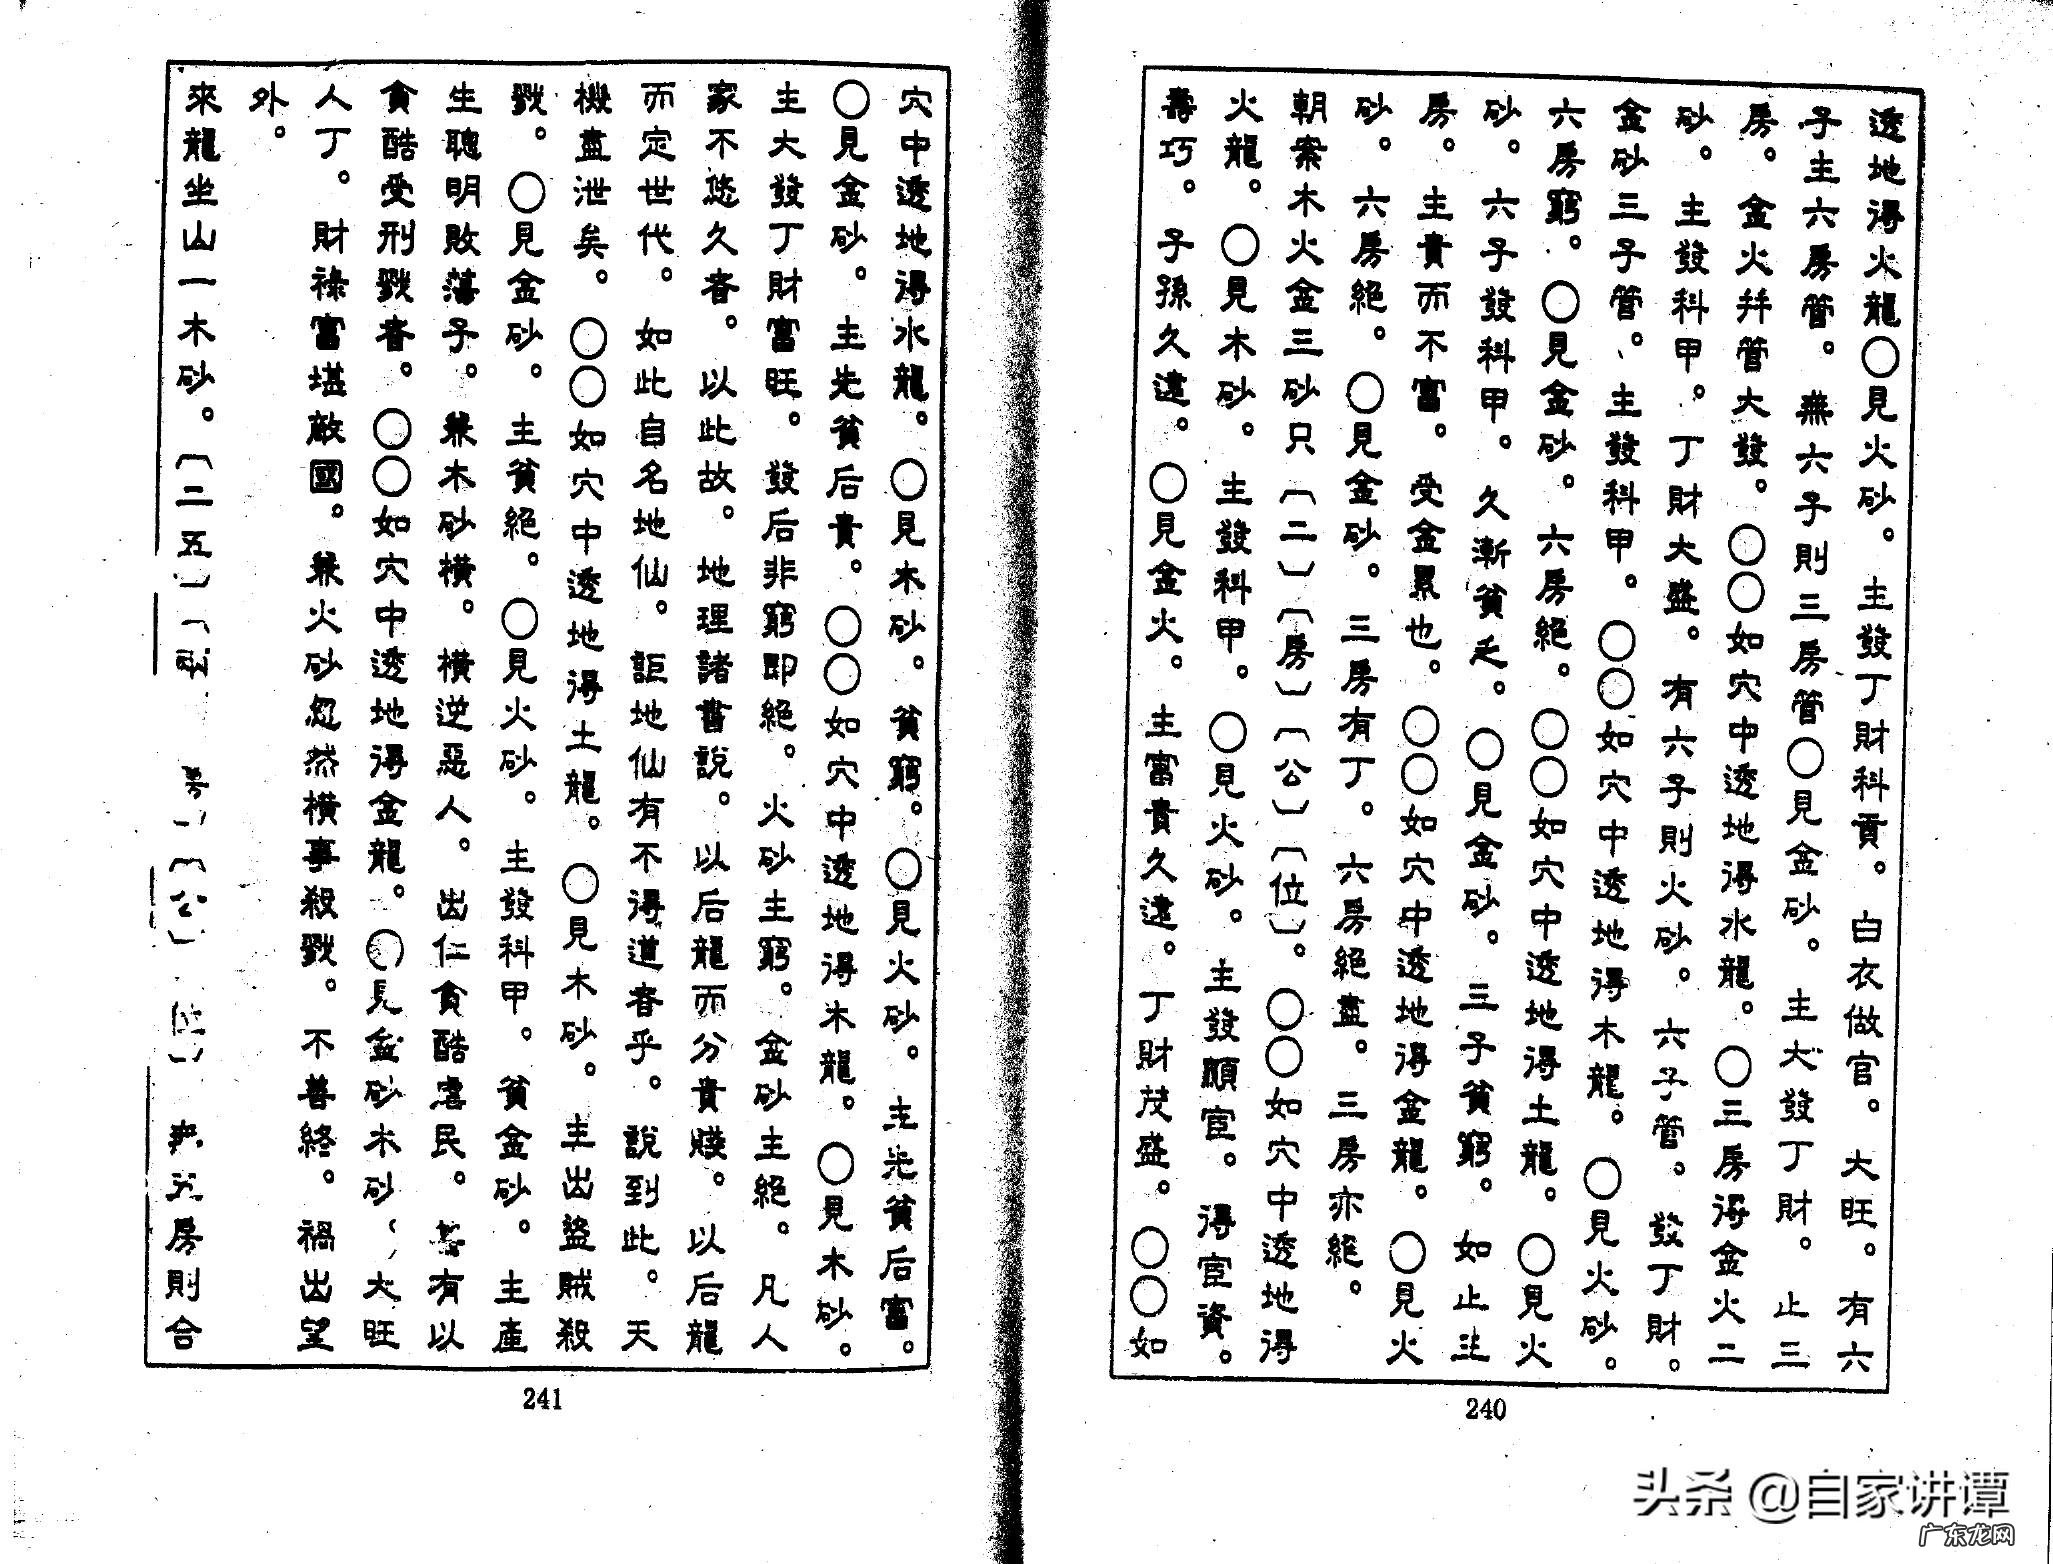 透地得火龍○見火砂。主發丁財科貢。白衣做官。大旺。有六
子主六房管。無六子則三房管○見金砂。主大發丁財。止三
房。金火幷管大發。○○如穴中透地得水龍。○三房得金火二
砂。主發科甲。丁財大盛。有六子則火砂。六子管。發丁財。
金砂三子管。主發科甲。○○如穴中透地得木龍。○見火砂。
六房窮。○見金砂。六房絕。○○如穴中透地得土龍。○見火
砂。六子發科甲。久漸貧乏。○見金砂。三子貧窮。如止主
房。主貴而不富。受金累也。○○如穴中透地得金龍。○見火
砂。六房絕。○見金砂。三房有丁。六房絕盡。三房亦絕。
朝案木火金三砂只〔二〕〔房〕〔公〕〔位〕。○○如穴中透地得
火龍。○見木砂。主發科甲。○見火砂。主發顯宦。得宦資。
壽巧。子孫久遠。○見金火。主富貴久遠。丁財茂盛。○○如
240
穴中透地得水龍。○見木砂。貧窮。○見火砂。主先貧后富。
○見金砂。主先貧后貴。○○如穴中透地得木龍。○見木砂。
主大發丁財富旺。發后非窮即絕。火砂主窮。金砂主絕。凡人
家不悠久者。以此故。地理諸書說。以后龍而分貴賤。以后龍
而定世代。如此自名地仙。詎地仙有不得道者乎。說到此。天
機盡泄矣。○○如穴中透地得土龍。○見木砂。主出盜賊殺
戮。○見金砂。主貧絕。○見火砂。主發科甲。貧金砂。主產
生聰明敗蕩子。兼木砂橫。橫逆惡人。出仁貪酷虐民。有以
貪酷受刑戮者。○○如穴中透地得金龍。○見金砂木砂、大旺
人丁。財祿富堪敵國。兼火砂忽然橫事殺戮。不善終。禍出望
外。
來龍坐山一木砂。〔二五〕〔公〕五房則合
241
头条 @自家讲谭
广东龙网